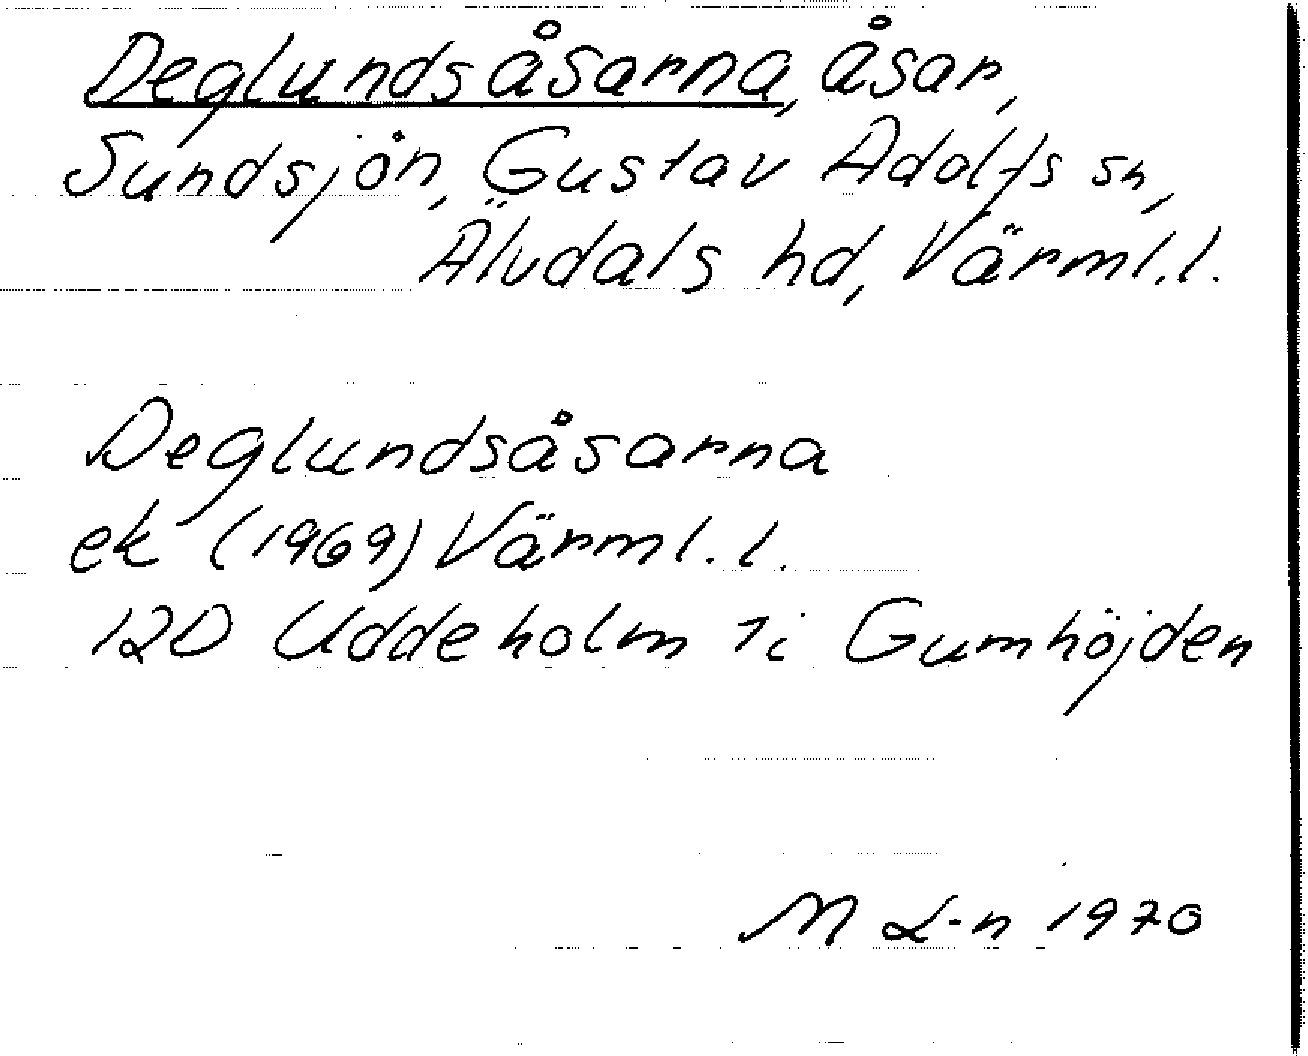 Deglundsåsarna, åsar,
Sundsjön, Gustav Adolfs sn,
Älvdals hd, Värml.l.
Deglundsåsarna
ek (1969) Värml.l.
12D Uddeholm 7i Gumhöjden
M L-n 1970